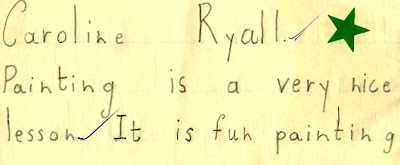 Caroline Ryall.
Painting is a very nice
lesson. It is fun painting